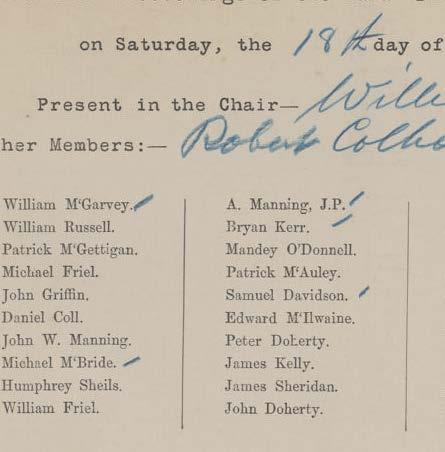 on Saturday, the 18th day of
Present in the Chair—
her Members:— Robert
William M'Garvey.
William Russell.
Patrick M'Gettigan.
Michael Friel.
John Griffin.
Daniel Coll.
John W. Manning.
Michael M'Bride.
Humphrey Sheils.
William Friel.
A. Manning, J.P.
Bryan Kerr.
Mandey O'Donnell.
Patrick M'Auley.
Samuel Davidson.
Edward M'Ilwaine.
Peter Doherty.
James Kelly.
James Sheridan.
John Doherty.